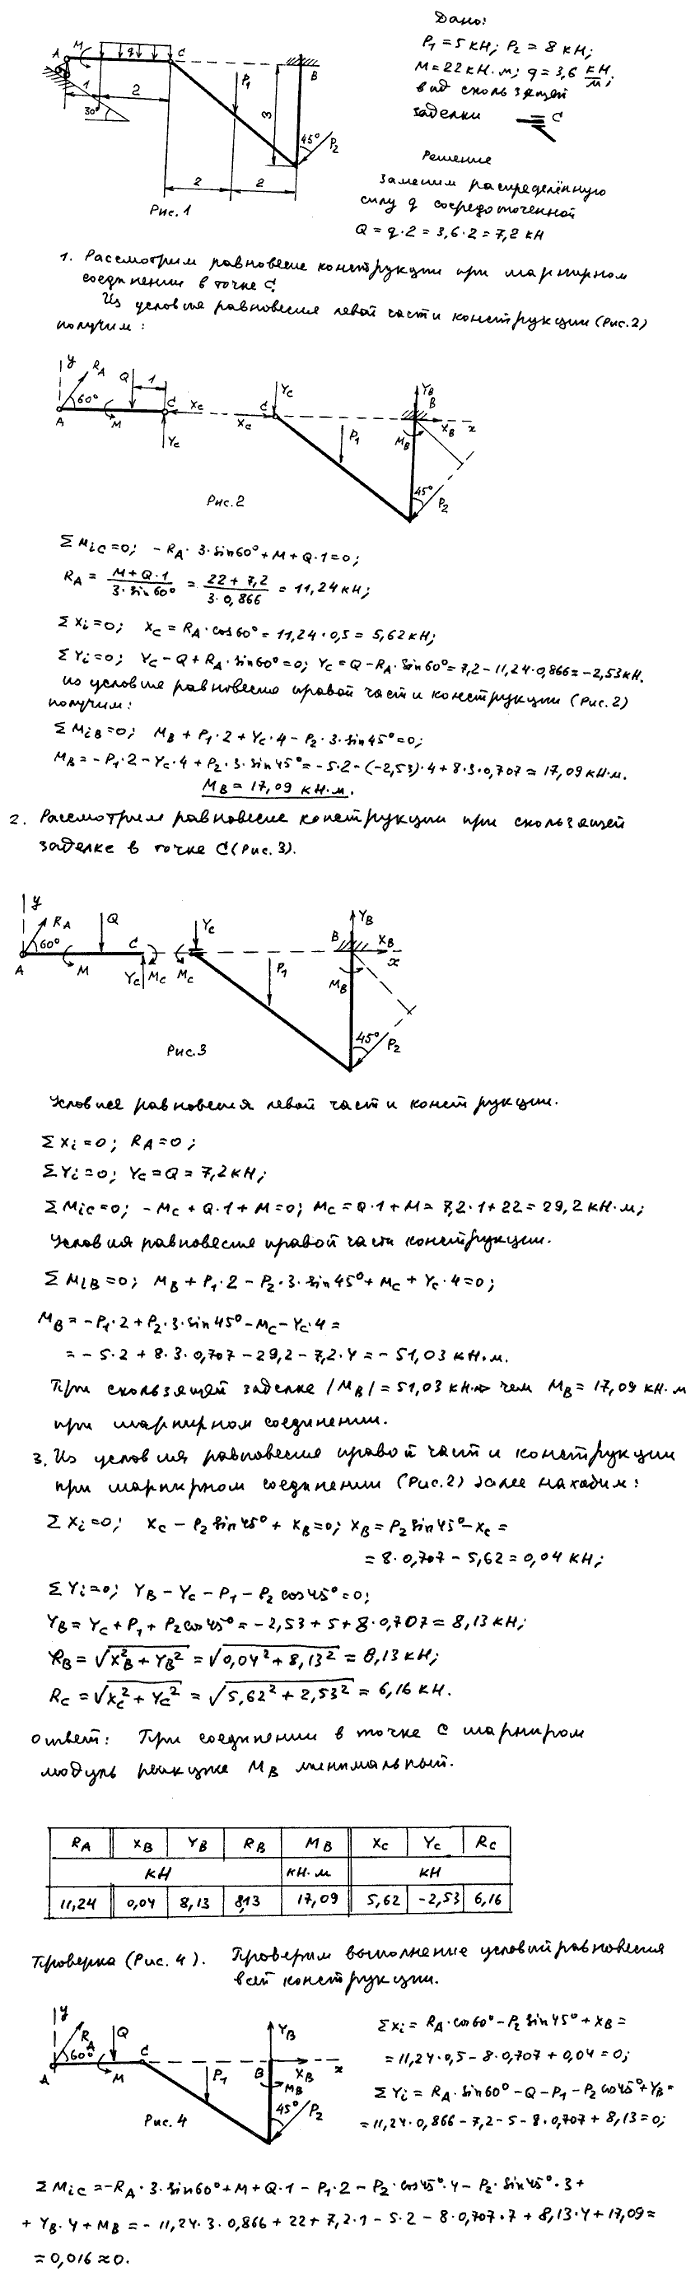 Дано:
P₁ = 5 кН; P₂ = 8 кН;
M = 22 кН·м; q = 3,6 кН/м;
вид скользящей
заделки C
Решение
Заменим распределённую
силу q сосредоточенной
Q = q·2 = 3,6·2 = 7,2 кН
A M q C P₁ B
1 2 3
30° 45° P₂
2 2
Рис.1
1. Рассмотрим равновесие конструкции при шарнирном
соединении в точке C.
Из условия равновесия левой части конструкции (Рис.2)
получим:
y R_A Q 1 Y_C Y_B
60° C X_C X_C C B X_B x
A M Y_C P₁ M_B
45° P₂
Рис.2
ΣM_iC = 0; - R_A·3·sin60° + M + Q·1 = 0;
R_A = (M + Q·1)/(3·sin60°) = (22 + 7,2)/(3·0,866) = 11,24 кН;
ΣX_i = 0; X_C = R_A·cos60° = 11,24·0,5 = 5,62 кН;
ΣY_i = 0; Y_C - Q + R_A·sin60° = 0; Y_C = Q - R_A·sin60° = 7,2 - 11,24·0,866 = -2,53 кН.
Из условия равновесия правой части конструкции (Рис.2)
получим:
ΣM_iB = 0; M_B + P₁·2 + Y_C·4 - P₂·3·sin45° = 0;
M_B = -P₁·2 - Y_C·4 + P₂·3·sin45° = -5·2 - (-2,53)·4 + 8·3·0,707 = 17,09 кН·м.
M_B = 17,09 кН·м.
2. Рассмотрим равновесие конструкции при скользящей
заделке в точке C (Рис.3).
y R_A Q Y_C Y_B
60° C B X_B
A M Y_C M_C M_C P₁ M_B x
45° P₂
Рис.3
Условие равновесия левой части конструкции.
ΣX_i = 0; R_A = 0;
ΣY_i = 0; Y_C = Q = 7,2 кН;
ΣM_iC = 0; - M_C + Q·1 + M = 0; M_C = Q·1 + M = 7,2·1 + 22 = 29,2 кН·м;
Условия равновесия правой части конструкции.
ΣM_iB = 0; M_B + P₁·2 - P₂·3·sin45° + M_C + Y_C·4 = 0;
M_B = -P₁·2 + P₂·3·sin45° - M_C - Y_C·4 =
= -5·2 + 8·3·0,707 - 29,2 - 7,2·4 = -51,03 кН·м.
При скользящей заделке |M_B| = 51,03 кН·м> чем M_B = 17,09 кН·м
при шарнирном соединении.
3. Из условия равновесия правой части конструкции
при шарнирном соединении (Рис.2) далее находим:
ΣX_i = 0; X_C - P₂ sin45° + X_B = 0; X_B = P₂ sin45° - X_C =
= 8·0,707 - 5,62 = 0,04 кН;
ΣY_i = 0; Y_B - Y_C - P₁ - P₂ cos45° = 0;
Y_B = Y_C + P₁ + P₂ cos45° = -2,53 + 5 + 8·0,707 = 8,13 кН;
R_B = √(X_B² + Y_B²) = √(0,04² + 8,13²) = 8,13 кН;
R_C = √(X_C² + Y_C²) = √(5,62² + 2,53²) = 6,16 кН.
Ответ: При соединении в точке C шарниром
модуль реакции M_B минимальный.
R_A X_B Y_B R_B M_B X_C Y_C R_C
кН кН·м кН
11,24 0,04 8,13 8,13 17,09 5,62 -2,53 6,16
Проверка (Рис.4). Проверим выполнение условий равновесия
всей конструкции.
y R_A Q C Y_B
60° P₁ B X_B x
A M M_B
45° P₂
Рис.4
ΣX_i = R_A·cos60° - P₂ sin45° + X_B =
= 11,24·0,5 - 8·0,707 + 0,04 = 0;
ΣY_i = R_A·sin60° - Q - P₁ - P₂ cos45° + Y_B =
= 11,24·0,866 - 7,2 - 5 - 8·0,707 + 8,13 = 0;
ΣM_iC = -R_A·3·sin60° + M + Q·1 - P₁·2 - P₂·cos45°·4 - P₂·sin45°·3 +
+ Y_B·4 + M_B = -11,24·3·0,866 + 22 + 7,2·1 - 5·2 - 8·0,707·7 + 8,13·4 + 17,09 =
= 0,016 ≈ 0.